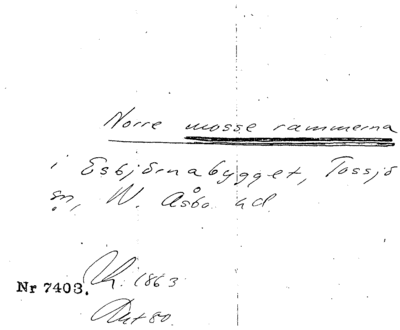 Norre mosse rammerna
i Esbjörnabygget, Tossjö
sn, N. Åsbo hd
Nr 7403. Kh. 1863
Akt 80.